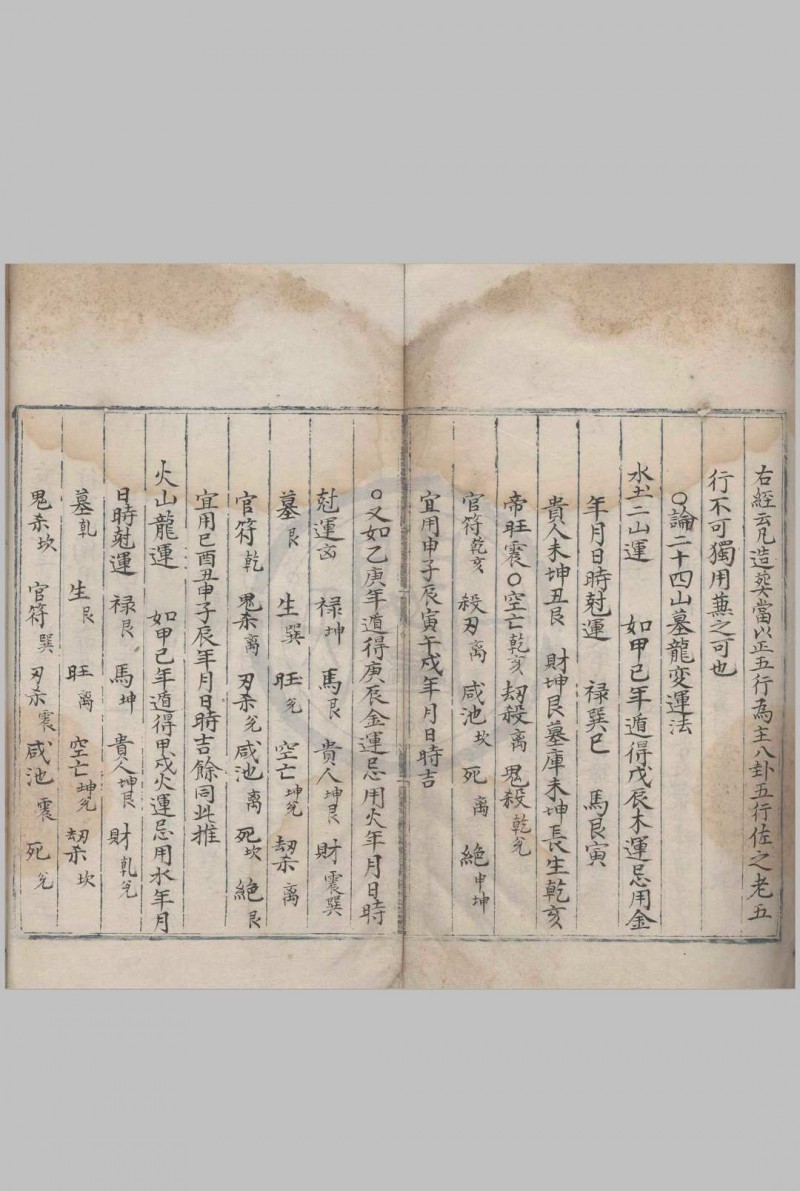 右經云凡造塟當以正五行為主八卦五行佐之老五
行不可獨用蕪之可也
○論二十四山墓龍变運法
水土二山運 如甲己年遁得戊辰木運忌用金
年月日時尅運 禄巽巳 馬艮寅
貴人未坤丑艮 財坤艮墓庫未坤長生乾亥
帝旺震○空亡乾亥刼殺离鬼殺乾兊
官符乾亥 殺刃离 咸池坎 死离 絶申坤
宜用申子辰寅午戌年月日時吉
○又如乙庚年遁得庚辰金運忌用火年月日時
尅運 禄坤 馬艮 貴人坤艮 財震巽
墓艮 生巽 旺兊 空亡坤兊 刼杀离
官符乾 鬼杀离 刃杀兊 咸池离 死坎 絶艮
宜用巳酉丑申子辰年月日時吉餘同此推
火山龍運 如甲己年遁得甲戌火運忌用水年月
日時尅運 禄艮 馬坤 貴人坤艮 財乾兊
墓乹 生艮 旺离 空亡坤兊 刼杀坎
鬼杀坎 官符巽 刃杀震 咸池震 死兊